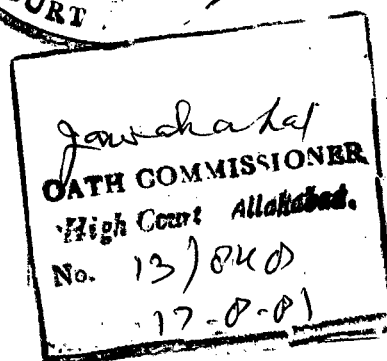 URT
Jawahar Lal
OATH COMMISSIONER
High Court Allahabad.
No. 13/840
17-8-81